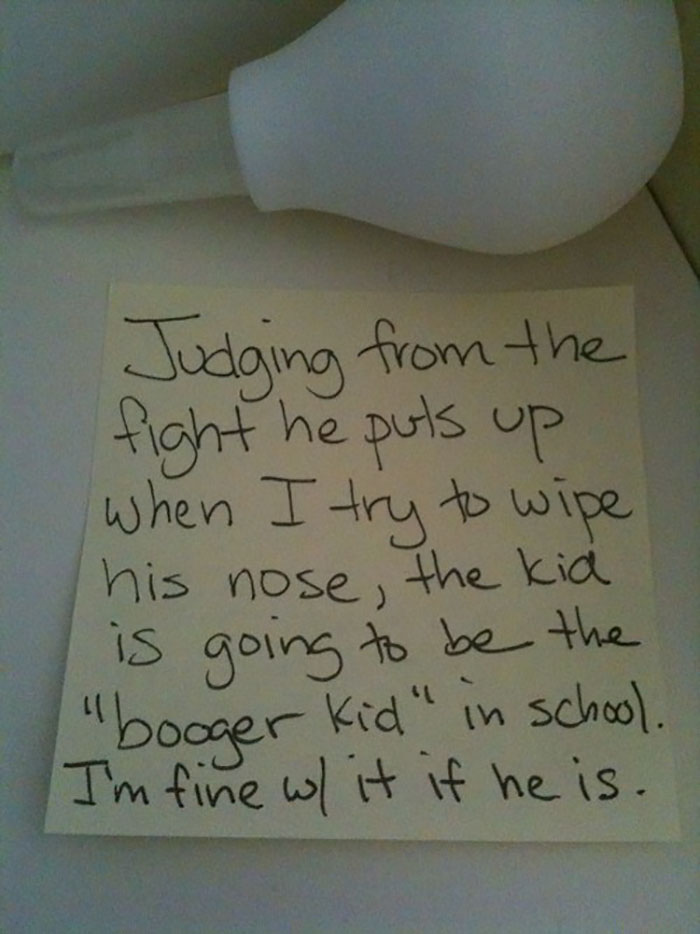 Judging from the
fight he puts up
when I try to wipe
his nose, the kid
is going to be the
"booger kid" in school.
I'm fine w/ it if he is.